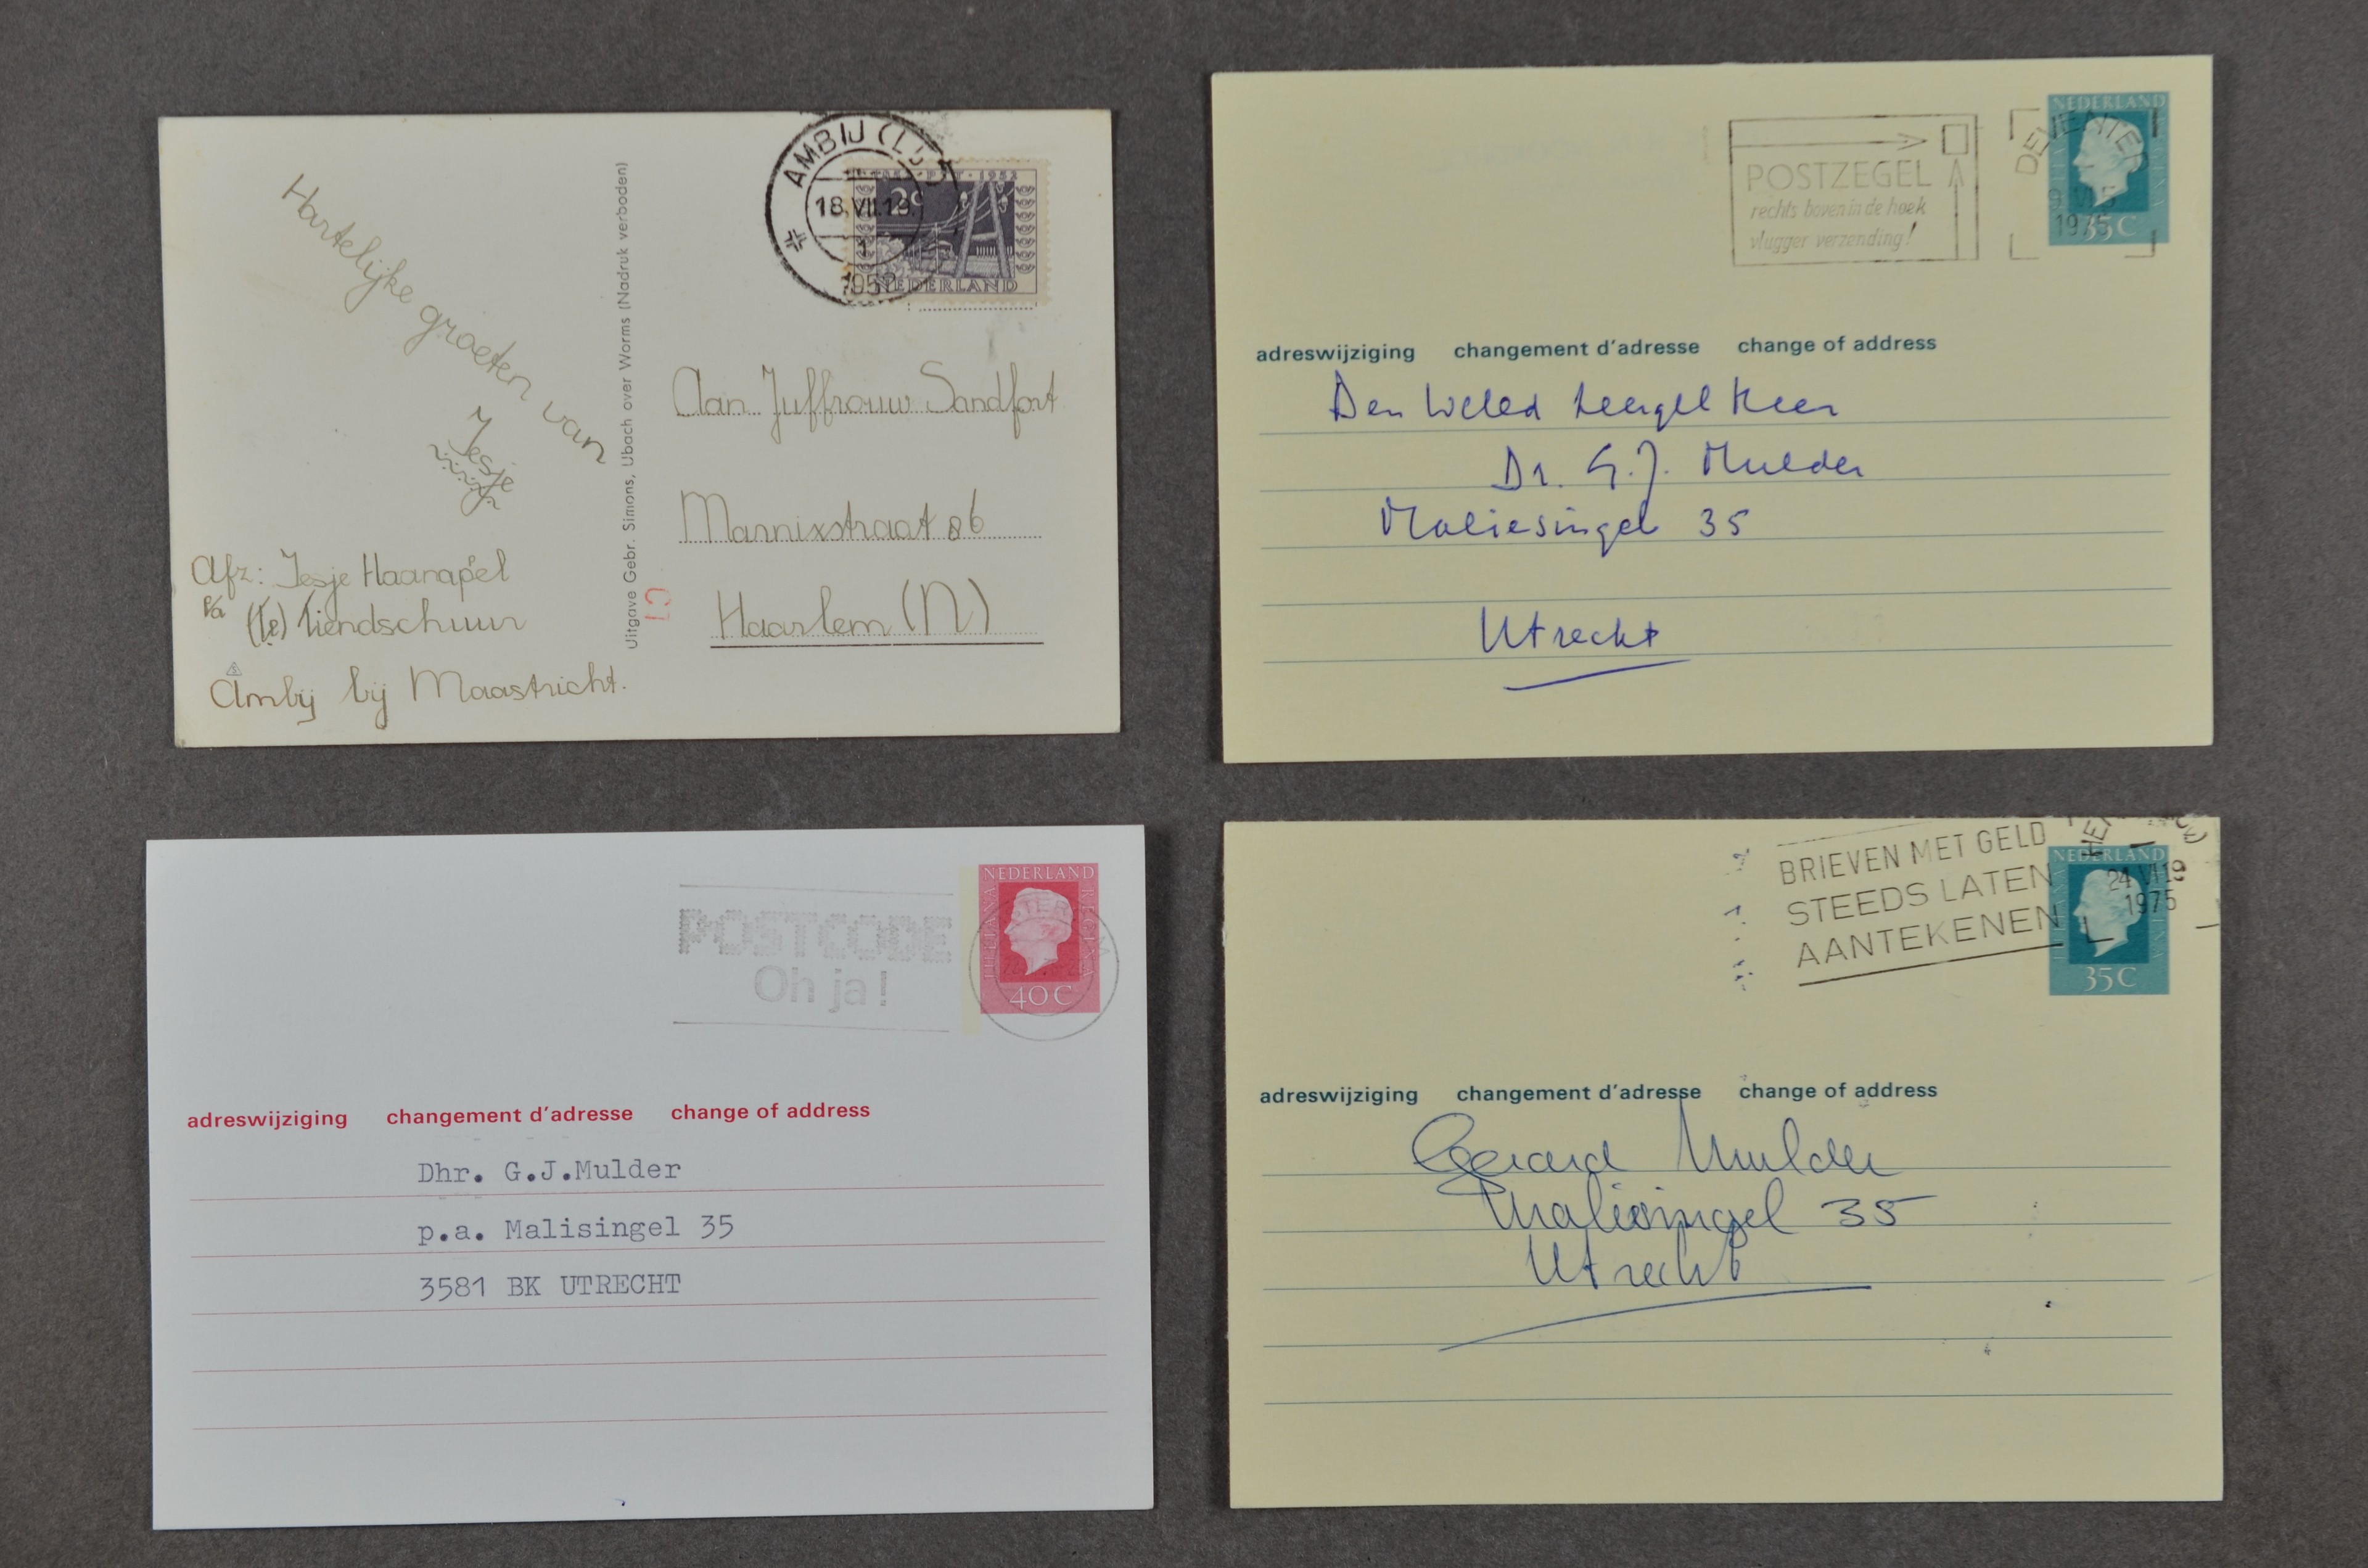 Hartelijke groeten van
Jesje
Afz: Jesje Haanapel
P/a (Te) Tiendschuur
Amby bij Maastricht.
Uitgave Gebr. Simons, Ubach over Worms (Nadruk verboden)
AMBIJ (L
18.VII.19
1952
1852·PTT·1952
2c
NEDERLAND
Aan Juffrouw Sandfort
Marnixstraat 86
Haarlem (N)
POSTZEGEL
rechts boven in de hoek
vlugger verzending!
NEDERLAND
DEVENTER
1975
35 C
adreswijziging changement d'adresse change of address
Den Weled Zeergel Heer
Dr. G.J. Mulder
Maliesingel 35
Utrecht
POSTCODE
Oh ja!
NEDERLAND
JULIANA REGINA
40 C
adreswijziging changement d'adresse change of address
Dhr. G.J.Mulder
p.a. Malisingel 35
3581 BK UTRECHT
BRIEVEN MET GELD
STEEDS LATEN
AANTEKENEN
NEDERLAND
24 VI 19
1975
35 C
adreswijziging changement d'adresse change of address
Gerard Mulder
Maliesingel 35
Utrecht